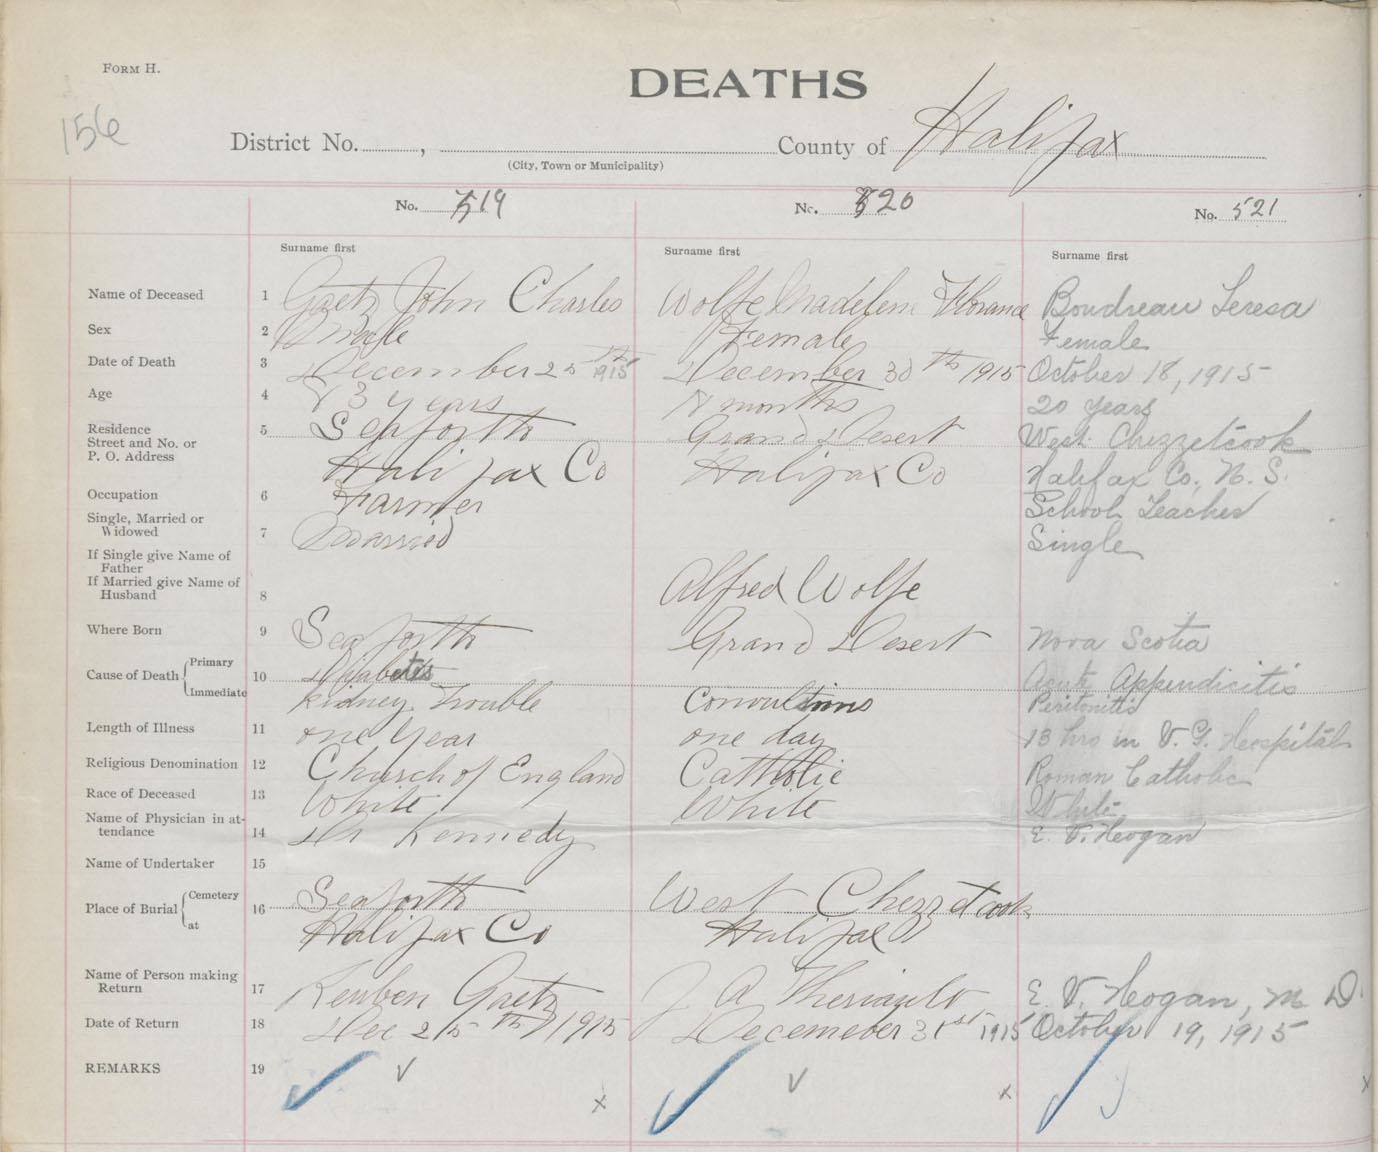 FORM H.
DEATHS
156
District No. , County of Halifax
(City, Town or Municipality)
No. 519 No. 520 No. 521
Surname first Surname first Surname first
Name of Deceased 1 Gaetz John Charles Wolfe Madelene Florance Boudreau Teresa
Sex 2 Male Female Female
Date of Death 3 December 25th 1915 December 30th 1915 October 18, 1915
Age 4 73 years months 20 years
Residence 5 Seaforth Grand Desert West Chezzetcook
Street and No. or
P. O. Address Halifax Co Halifax Co Halifax Co, N. S.
Occupation 6 Farmer School Teacher
Single, Married or
Widowed 7 Married Single
If Single give Name of
Father
If Married give Name of
Husband 8 Alfred Wolfe
Where Born 9 Seaforth Grand Desert Nova Scotia
Cause of Death { Primary 10 Diabetis Acute Appendicitis
Immediate Kidney Trouble Convultions Peritonitis
Length of Illness 11 one Year one day 13 hrs in V. G. Hospital
Religious Denomination 12 Church of England Catholic Roman Catholic
Race of Deceased 13 White White White
Name of Physician in at-
tendance 14 Dr Kennedy E. V. Hogan
Name of Undertaker 15
Place of Burial { Cemetery 16 Seaforth West Chezzetcook
at Halifax Co Halifax
Name of Person making
Return 17 Reuben Gaetz J A Theriault E. V. Hogan, M. D.
Date of Return 18 Dec 25th 1915 Decemeber 31st 1915 October 19, 1915
REMARKS 19